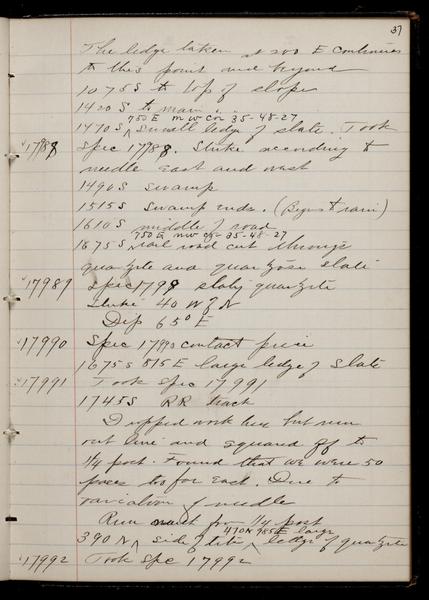 37
The ledge taken at 200 E continues
to this point and beyond
1075 S to top of slope
1420 S to main
750 E NW Cor 35-48-27
1470 S Small ledge of slate. Took
17988 Spec 17988. Strike according to
needle East and west
1490 S swamp
1515 S Swamp Ends. (Begins to rain)
1610 S middle of road
750 E NW Cor 35-48-27
1675 S rail road cut through
quartzite and quartzose slate
17989 Spec 17989 slaty quartzite
Strike 40 W of N
Dip 65° E
17990 Spec 17990 contact piece
1675 S 815 E large ledge of Slate
17991 Took Spec 17991
1745 S RR track
Dropped work here but run
out line and squared off to
1/4 post. Found that we were 50
paces too far East. Due to
variation of needle
Run north from 1/4 post
470 N 985 E large
390 N side of ledge of quartzite
17992 Took Spc 17992